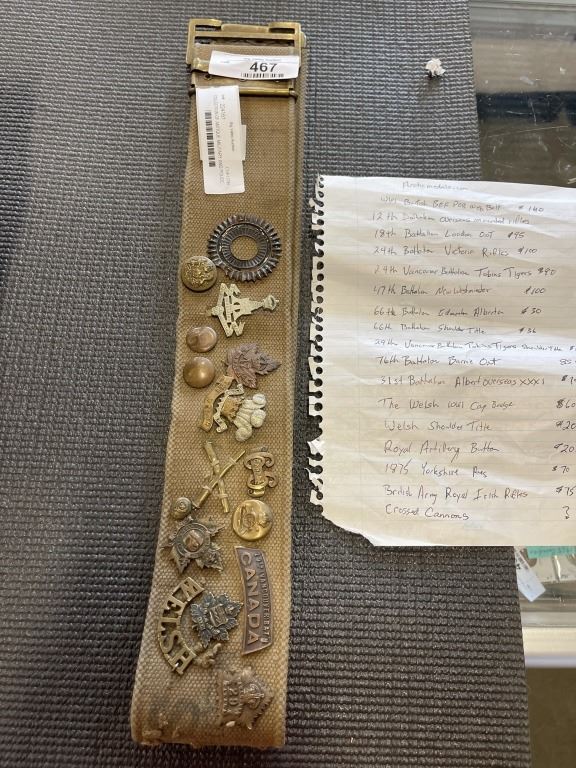 467
WELSH
CANADA
WW1 British BEF P08 Web Belt $140
12th Battalion overseas mounted rifles
18th Battalion London Ont $95
29th Battalion Victoria Rifles $100
29th Vancouver Battalion Tobins Tigers $90
47th Battalion New Westminster $100
66th Battalion Edmonton Alberta $30
66th Battalion Shoulder Title $36
29th Vancouver Battalion Tobins Tigers Shoulder Title
76th Battalion Barrie Ont 85
31st Battalion Alberta Overseas XXXI
The Welsh WW1 Cap Badge $60
Welsh Shoulder Title $20
Royal Artillery Button $20
1875 Yorkshire $70
British Army Royal Irish Rifles $75
Crossed Cannons ?